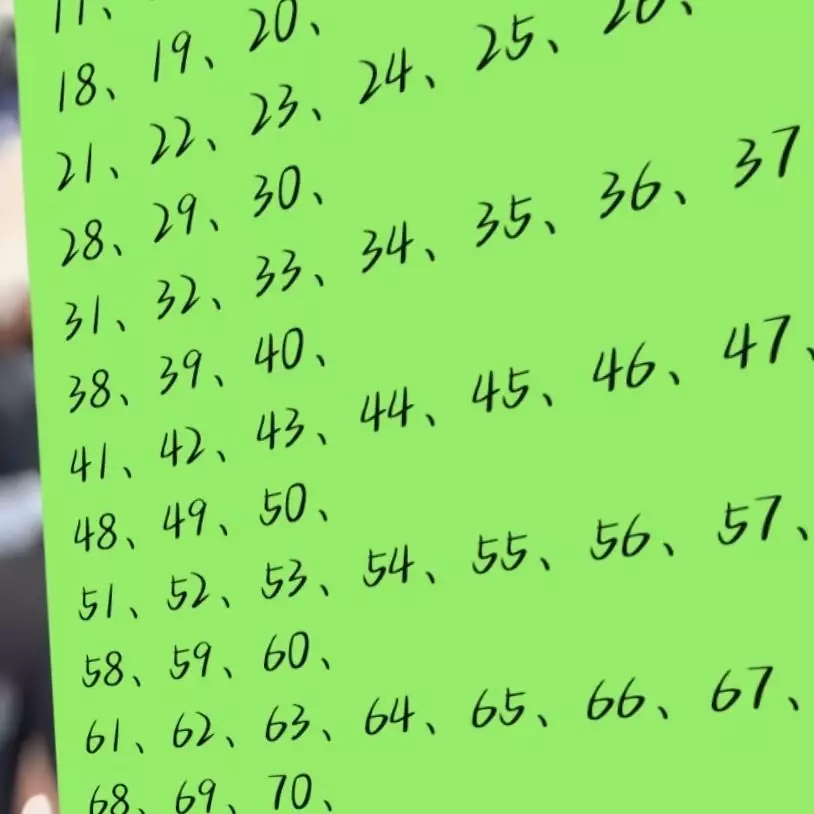 11、
18、19、20、
21、22、23、24、25、26、
28、29、30、
31、32、33、34、35、36、37
38、39、40、
41、42、43、44、45、46、47、
48、49、50、
51、52、53、54、55、56、57、
58、59、60、
61、62、63、64、65、66、67、
68、69、70、